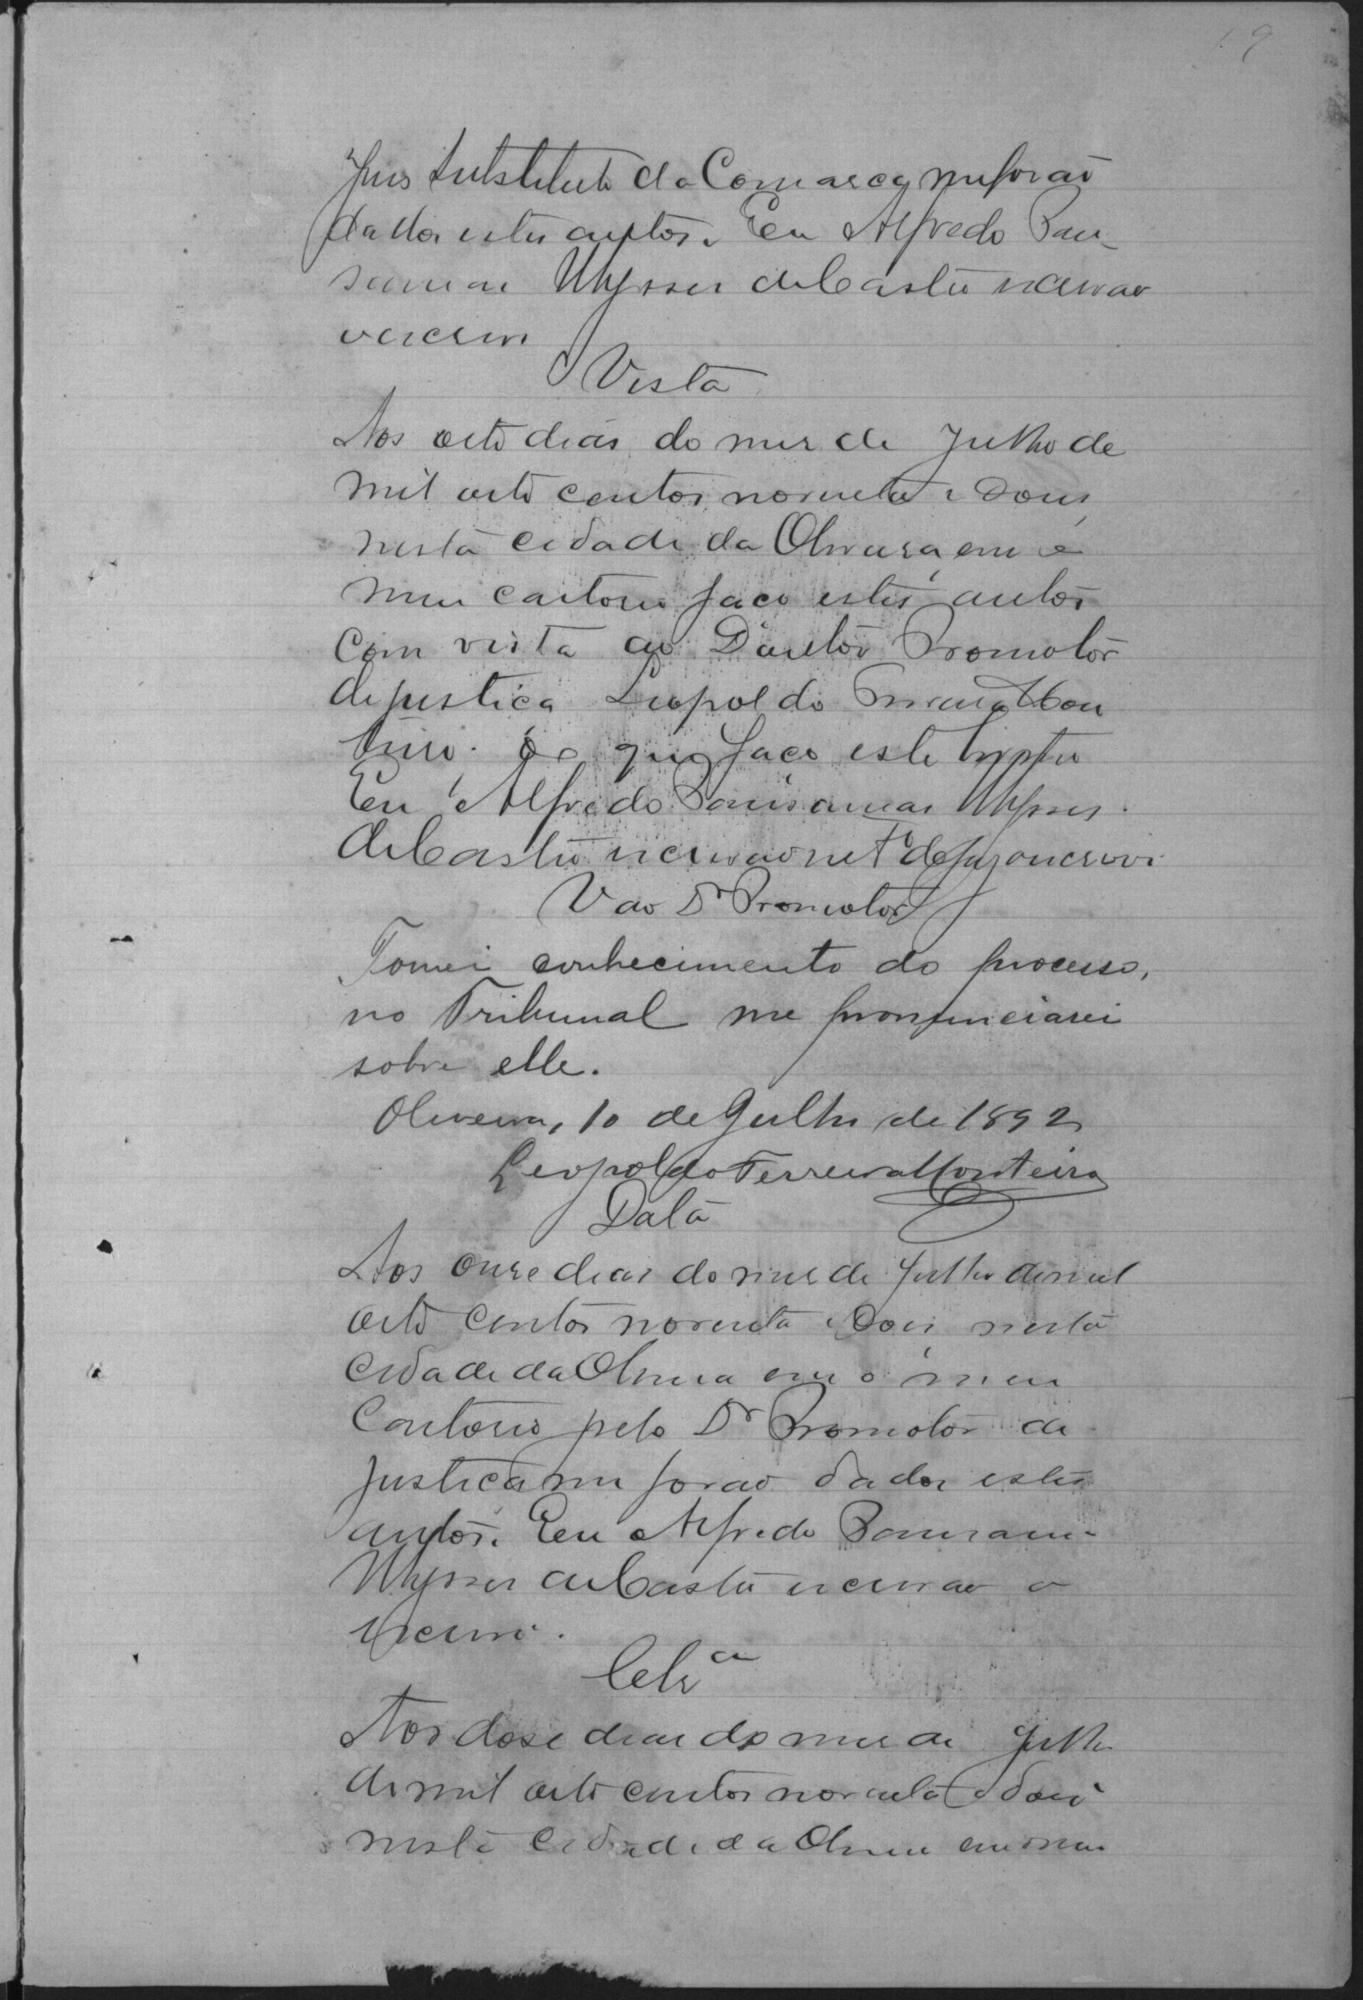 19
Juis Substituto da Comarca me forão
dados estes autos. Eu Alfredo Pau-
sanias Ulysses de Castro escrivão
o escrevi
Vista
Aos oito dias do mes de Julho de
mil oito centos noventa e dous
nesta cidade da Oliveira, em o
meu cartorio faco estes autos
com vista ao Doutor Promotor
de justica Leopoldo Ferreira Mon
teiro. Do que faco este termo
Eu Alfredo Pausanias Ulysses
de Castro escrivão o escrevi
V ao Dr Promotor
Tomei conhecimento do processo,
no Tribunal me pronunciarei
sobre elle.
Oliveira, 10 de Julho de 1892
Leopoldo Ferreira Monteiro
Data
Aos onze dias do mes de Julho de mil
oito centos noventa e dois nesta
cidade da Oliveira em o meu
Cartorio pelo Dr Promotor de
justica me forão dados estes
autos. Eu Alfredo Pausanias
Ulysses de Castro escrivão o
escrevi.
Clsa
Aos dose dias do mes de Julho
de mil oito centos noventa e dois
nesta cidade da Oliveira em o meu